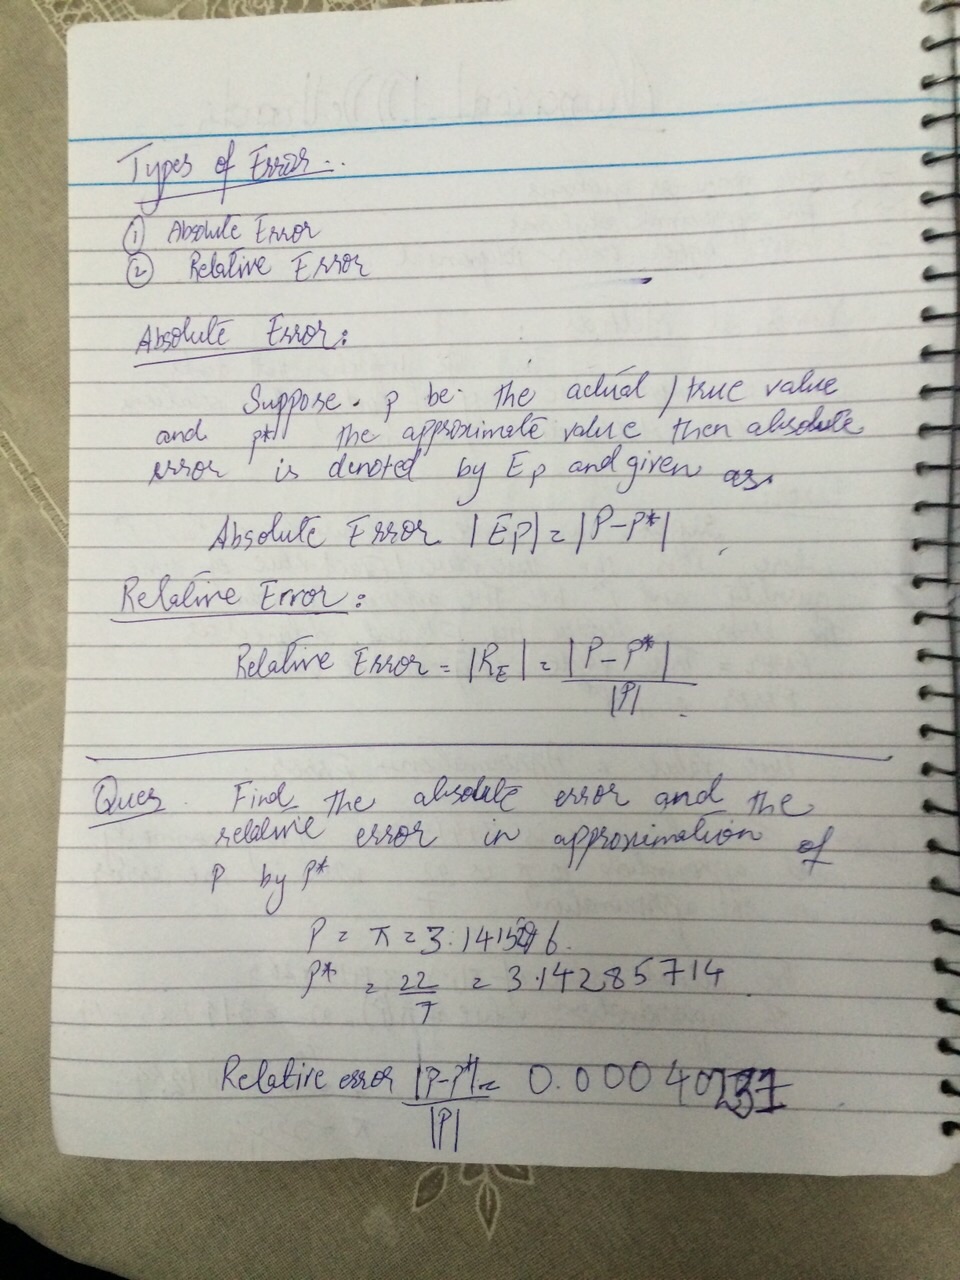 Types of Error:.
① Absolute Error
② Relative Error
Absolute Error:
Suppose. p be the actual / true value
and p* the approximate value then absolute
error is denoted by Ep and given as.
Absolute Error |Ep| = |P-P*|
Relative Error:
Relative Error = |RE| = |P-P*| / |P|
Ques. Find the absolute error and the
relative error in approximation of
P by P*
P = π =
P* = 22/7 = 3.14285714
Relative error |P-P*| / |P| =